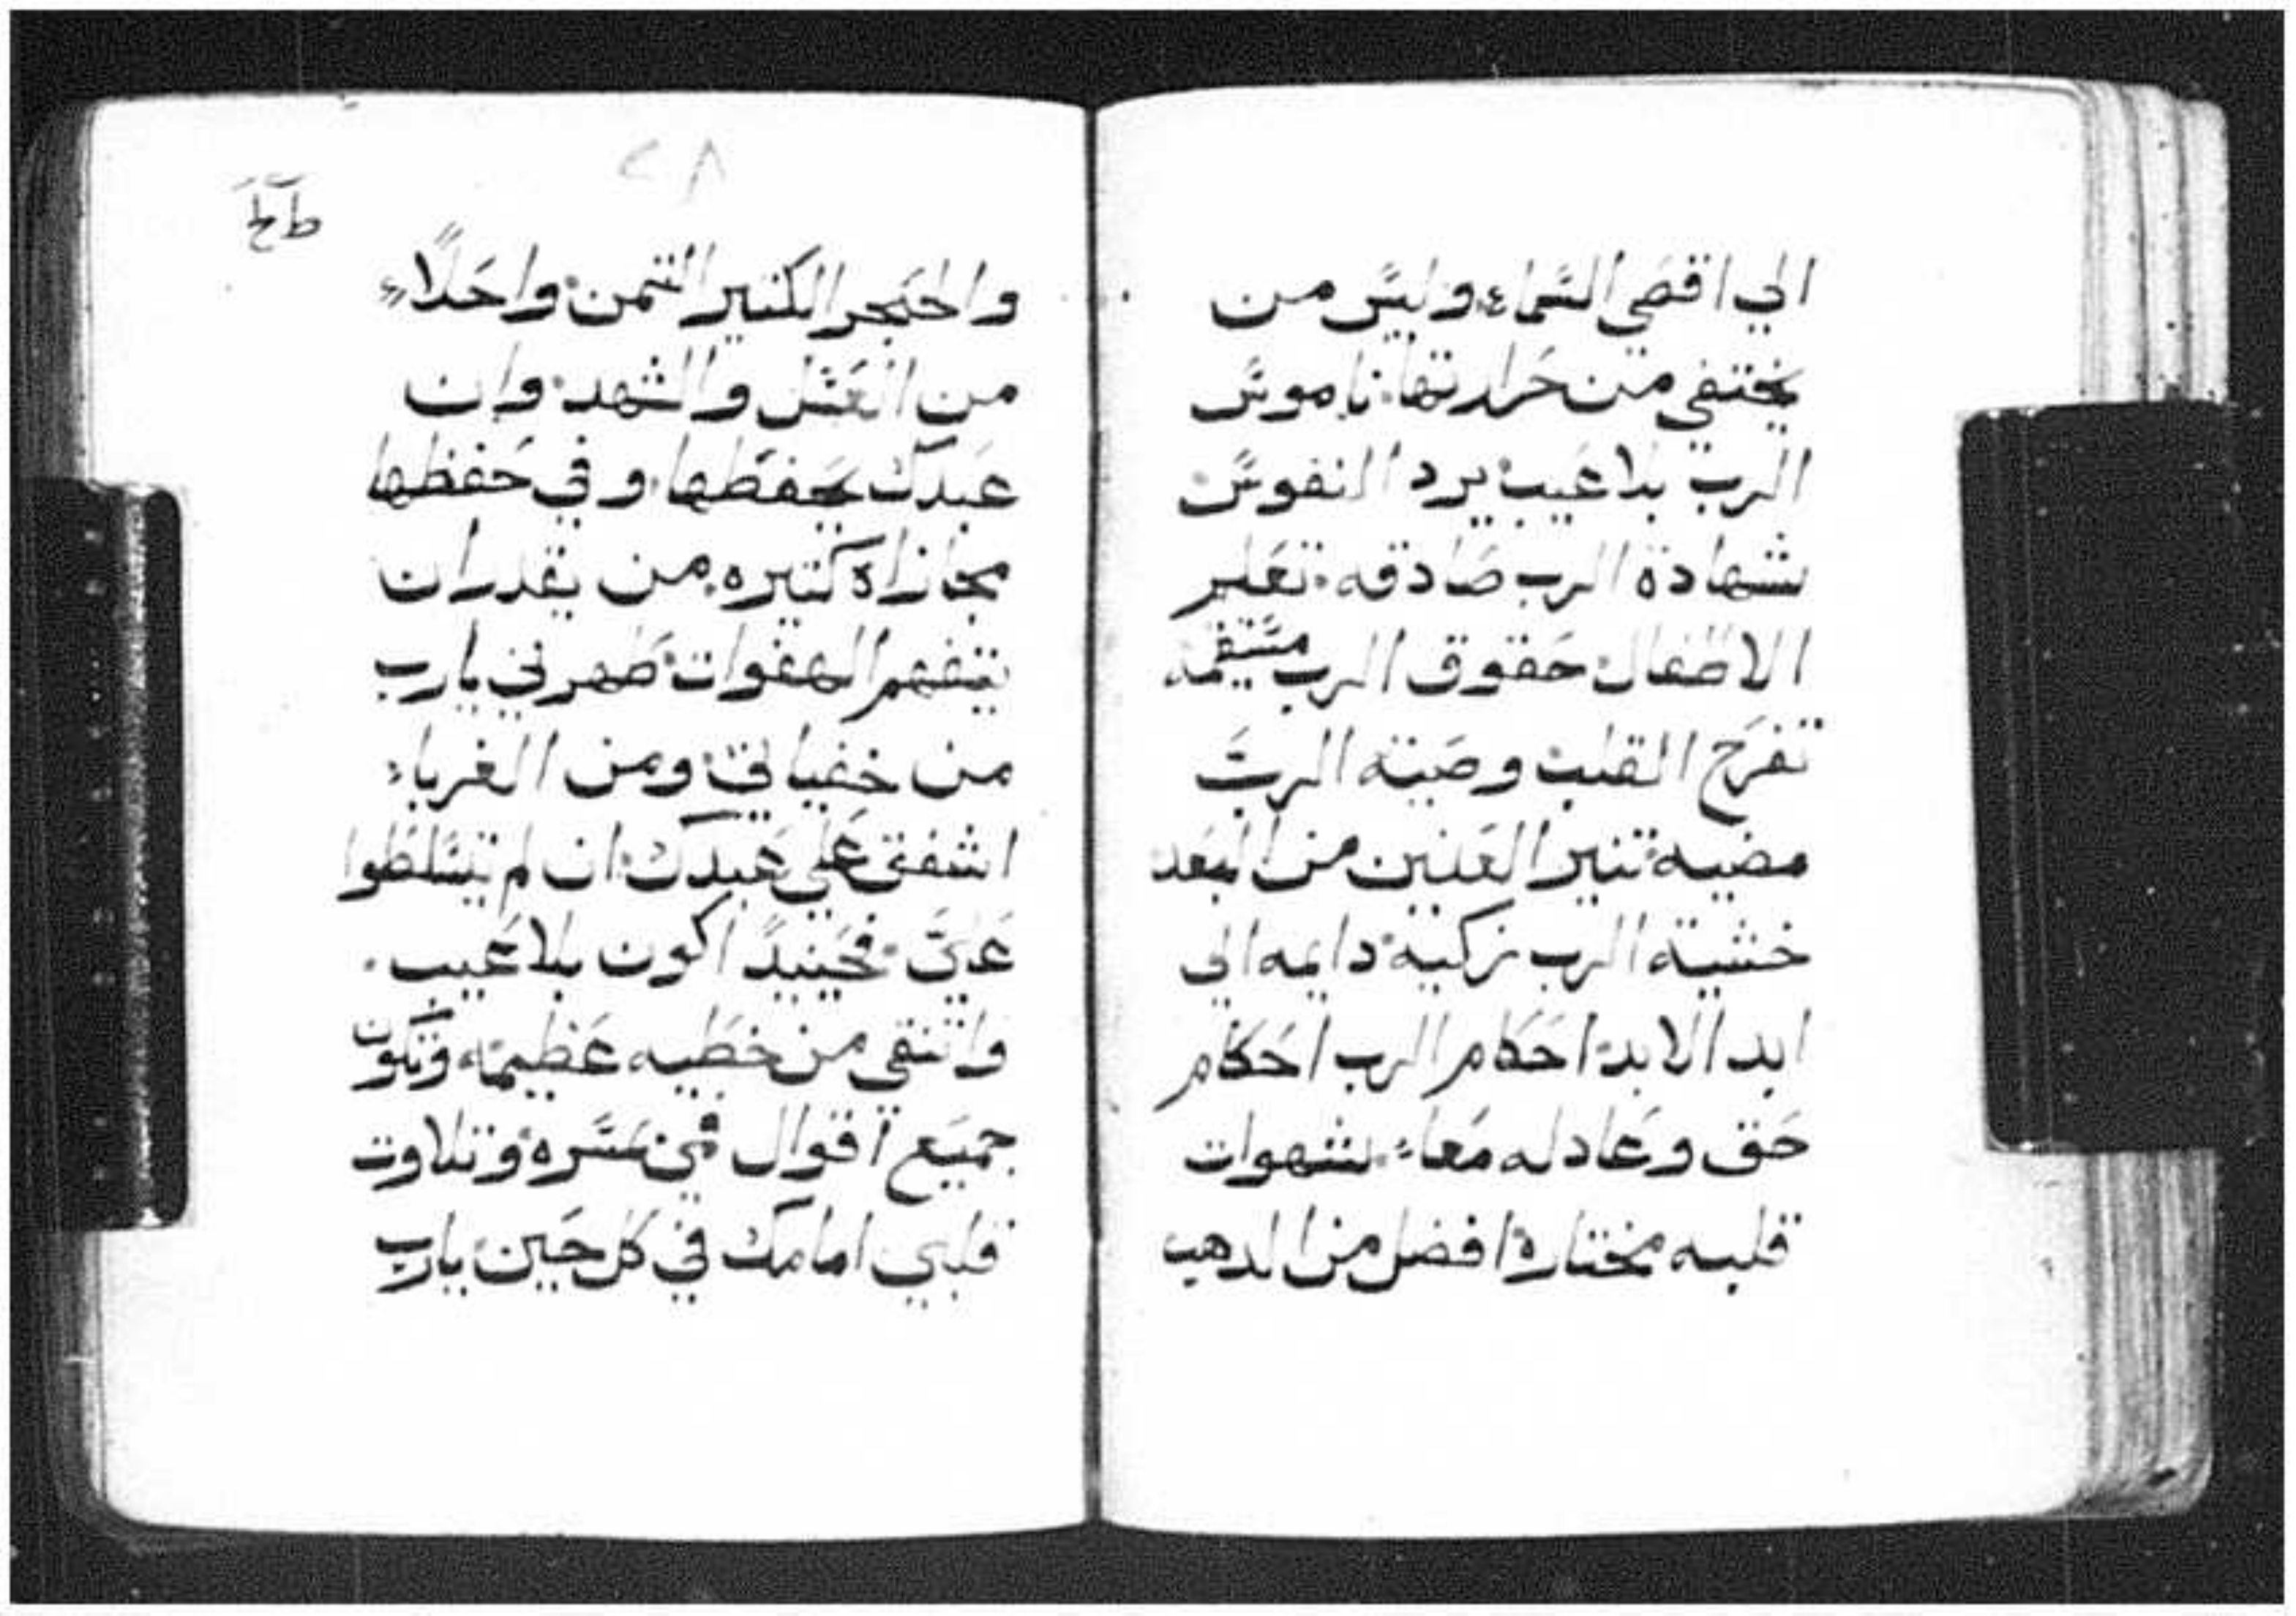 الي اقصي السماء وليس من
يختفي من حرارتها: ناموس
الرب بلا عيب: يرد النفوس:
شهادة الرب صادقه: تعلم
الاطفال: حقوق الرب مستقيمه
تفرح القلب: وصية الرب
مضيه: تنير العنين من البعد
خشية الرب زكية: دايمه الي
ابد الابد: احكام الرب احكام
حق وعادله معاء: شهوات
قلبه مختارة: افضل من الدهب
٢٨
واحلاء
من العسل والشهد: وان
عبدك يحفظها: وفي حفظها
مجازاة كتيره: من يقدر ان
يتفهم الهفوات: طهرني يارب
من خفياتي: ومن الغرباء:
اشفق علي عبدك: ان لم يتسلطوا
علي: فحينيدً اكون بلا عيب.
واتنقي من خطيه عظيمه: وتكون
جميع اقوال فمي مسرة: وتلاوت
قلبي امامك في كل حين: يارب